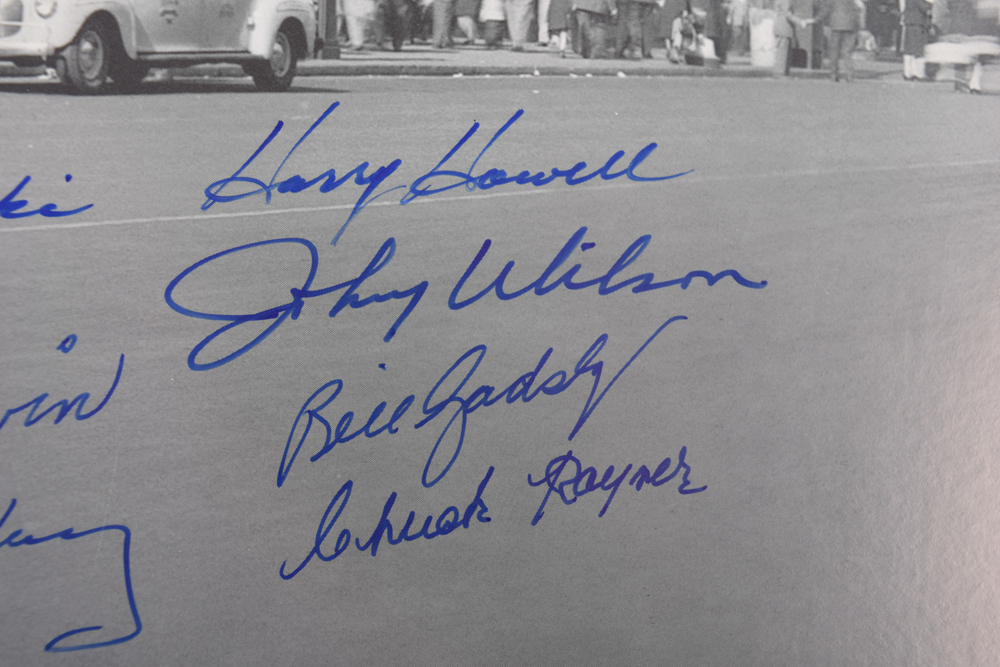 ki
Harry Howell
Johnny Wilson
Bill Gadsby
vin
Chuck Rayner